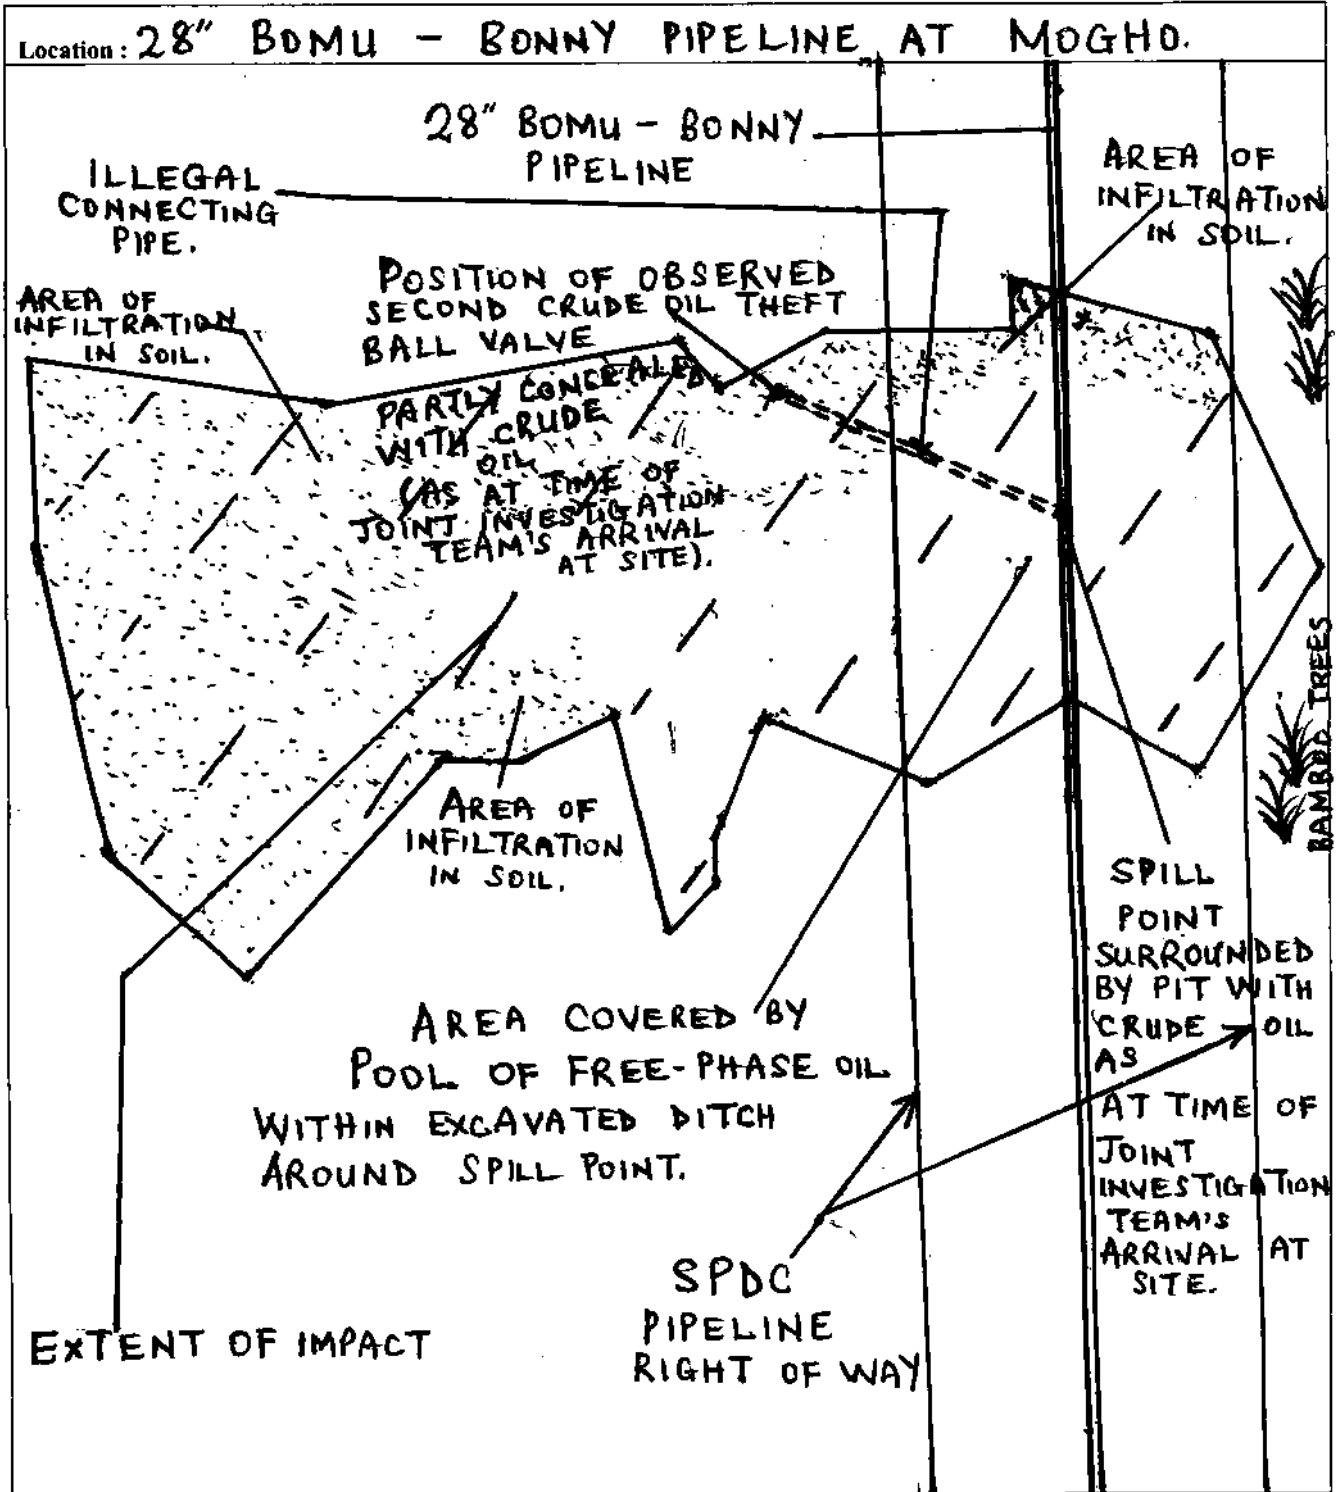 Location : 28" BOMU - BONNY PIPELINE AT MOGHO.
28" BOMU - BONNY
PIPELINE
AREA OF
INFILTRATION
IN SOIL.
ILLEGAL
CONNECTING
PIPE.
POSITION OF OBSERVED
SECOND CRUDE OIL THEFT
BALL VALVE
PARTLY CONCEALED
WITH CRUDE
OIL
(AS AT TIME OF
JOINT INVESTIGATION
TEAM'S ARRIVAL
AT SITE).
AREA OF
INFILTRATION
IN SOIL.
BAMBOO TREES
AREA OF
INFILTRATION
IN SOIL.
SPILL
POINT
SURROUNDED
BY PIT WITH
CRUDE OIL
AS
AT TIME OF
JOINT
INVESTIGATION
TEAM'S
ARRIVAL AT
SITE.
AREA COVERED BY
POOL OF FREE-PHASE OIL
WITHIN EXCAVATED DITCH
AROUND SPILL POINT.
SPDC
PIPELINE
RIGHT OF WAY
EXTENT OF IMPACT